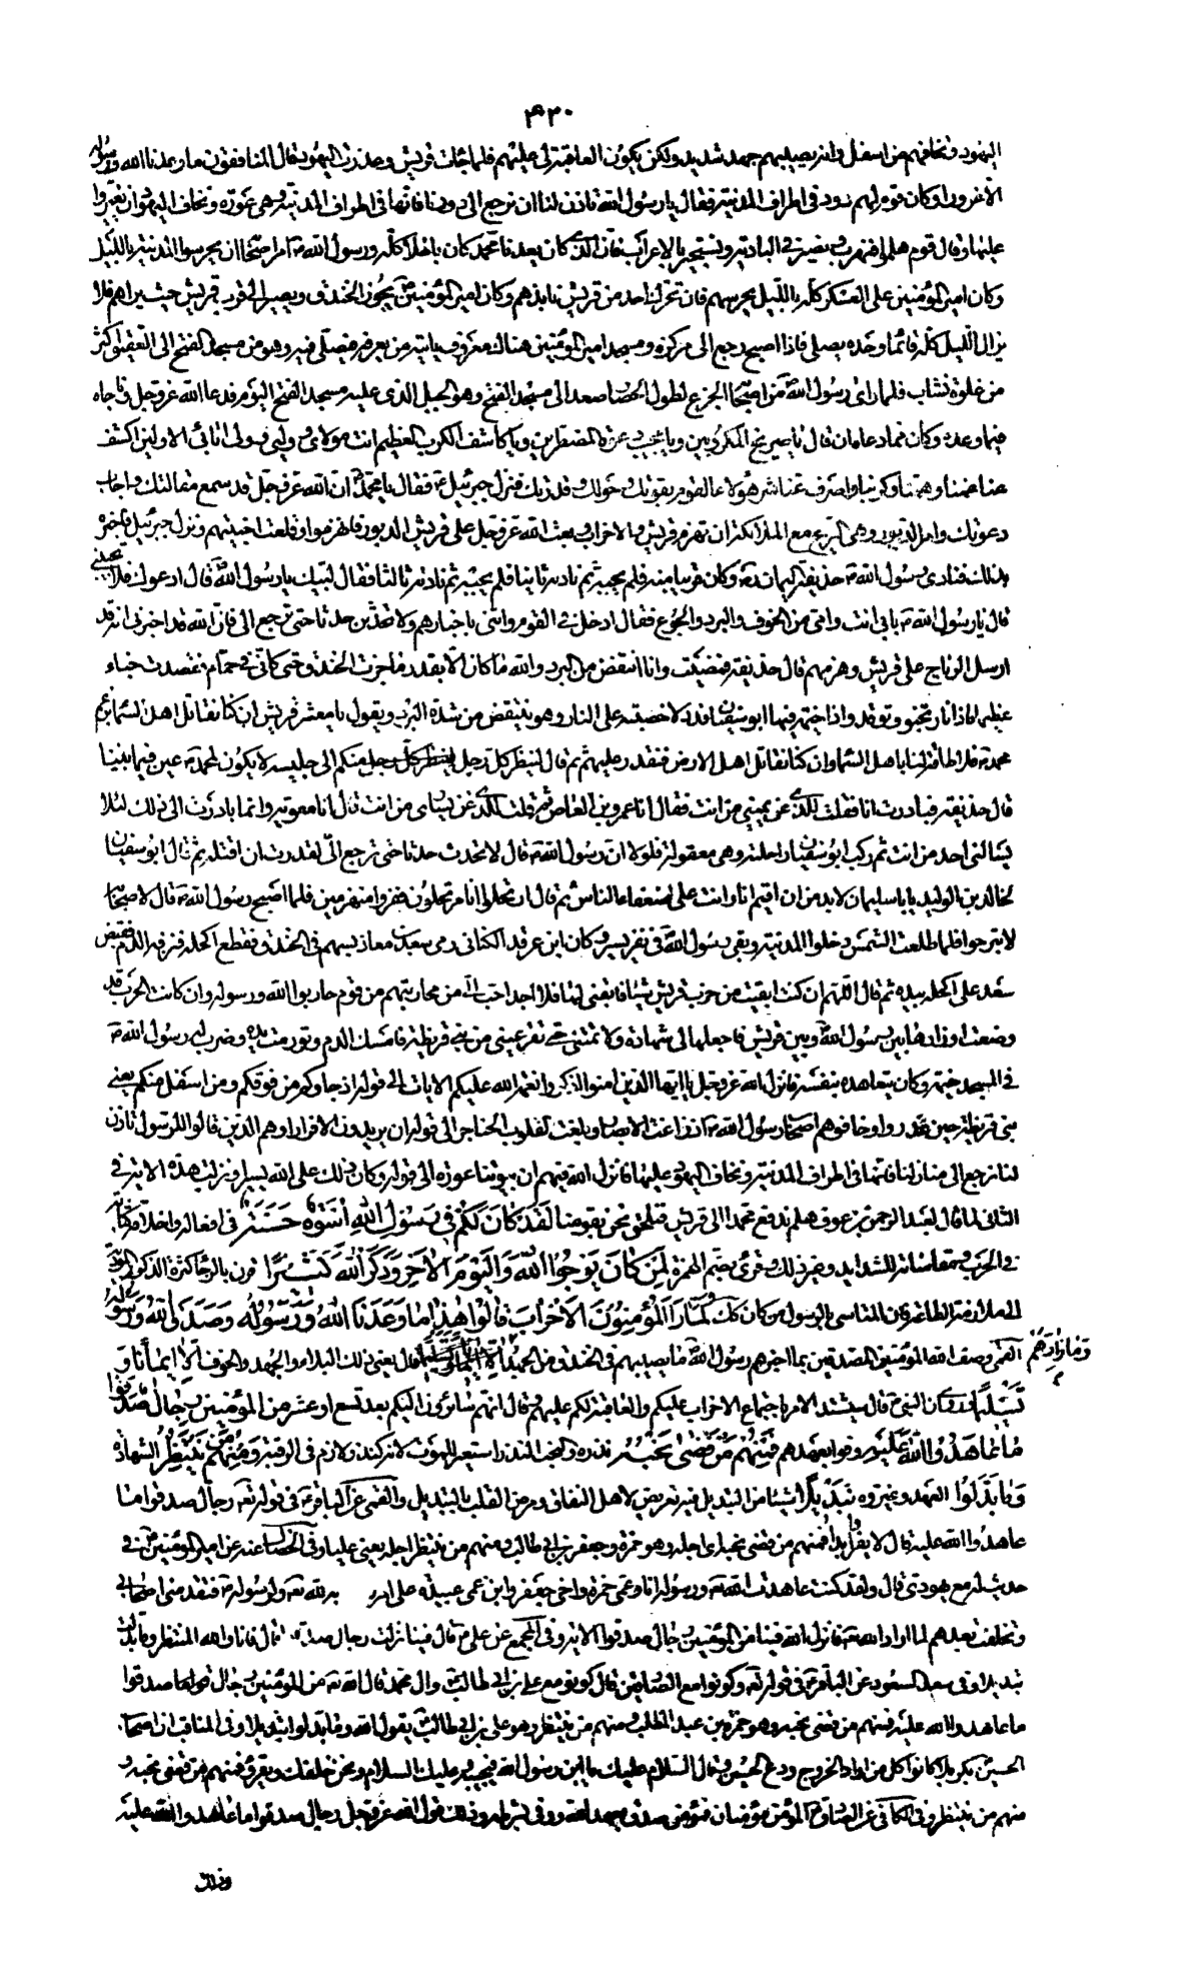 ۴۲۰
اليهود ونخافهم من اسفل وانه يصيبهم جهد شديد ولكن يكون العاقبة لى عليهم فلما جائت قريش وغدرت اليهود قال المنافقون ما وعدنا الله ورسوله
الا غرورا وكان قوم لهم دور فى اطراف المدينة فقال يا رسول الله تأذن لنا ان نرجع الى دورنا فانها فى اطراف المدينة وهى عورة ونخاف اليهود ان يغيروا
عليها وقال قوم هلموا فنهرب ونصير فى البادية ونستجير بالاعراب فان الذى كان يعدنا محمد كان باطلا كله ورسول الله ص امر اصحابه ان يحرسوا المدينة بالليل
وكان امير المؤمنين على العسكر كله بالليل يحرسهم فان تحرك احد من قريش نابذهم وكان امير المؤمنين ع يجوز الخندق ويصير الى قرب قريش حيث يراهم فلا
يزال الليل كله قائما وحده يصلى فاذا اصبح رجع الى مركزه ومسجد امير المؤمنين هناك معروف يأتيه من يعرفه فيصلى فيه وهو من مسجد الفتح الى العقيق اكثر
من غلوة نشاب فلما راى رسول الله ص من اصحابه الجزع لطول الحصار صعد الى مسجد الفتح وهو الجبل الذى عليه مسجد الفتح اليوم فدعا الله عز وجل وناجاه
فيما وعده وكان مما دعاه ان قال يا صريخ المكروبين ويا مجيب دعوة المضطرين ويا كاشف الكرب العظيم انت مولاى ووليى وولى ابائى الاولين اكشف
عنا غمنا وهمنا وكربنا واصرف عنا شر هؤلاء القوم بقوتك وحولك وقدرتك فنزل جبرئيل ع فقال يا محمد ان الله عز وجل قد سمع مقالتك واجاب
دعوتك وامر الدبور وهى الريح مع الملائكة ان تهزم قريش والاحزاب وبعث الله عز وجل على قريش الدبور فانهزموا وقلعت اخبيتهم ونزل جبرئيل فاخبره
بذلك فنادى رسول الله ص حذيفة بن اليمان وكان قريبا منه فلم يجبه ثم ناداه ثانيا فلم يجبه ثم ناداه ثالثا فقال لبيك يا رسول الله قال ادعوك فلا تجيبنى
قال يا رسول الله ص بابى انت وامى من الخوف والبرد والجوع فقال ادخل فى القوم وائتنى باخبارهم ولا تحدثن حدثا حتى ترجع الى فان الله قد اخبرنى انه قد
ارسل الرياح على قريش وهزمهم قال حذيفة فمضيت وانا انتفض من البرد والله ما كان الا بقدر ما جزت الخندق حتى كانى فى حمام فقصدت خباء
عظيما فاذا نار تخبو وتوقد واذا خيمة فيها ابو سفيان قد دلا خصيتيه على النار وهو ينتفض من شدة البرد ويقول يا معشر قريش ان كنا نقاتل اهل السماء بزعم
محمد ص فلا طاقة لنا باهل السماء وان كنا نقاتل اهل الارض فنقدر عليهم ثم قال لينظر كل رجل منكم الى جليسه لا يكون لمحمد ص عين فيما بيننا
قال حذيفة فبادرت انا فقلت للذى عن يمينى من انت فقال انا عمرو بن العاص ثم قلت للذى عن يسارى من انت قال انا معوية وانما بادرت الى ذلك لئلا
يسالنى احد من انت ثم ركب ابو سفيان راحلته وهى معقولة فلولا ان رسول الله ص قال لا تحدث حدثا حتى ترجع الى لقدرت ان اقتله ثم قال ابو سفيان
لخالد بن الوليد يا با سليمان لا بد من ان اقيم انا وانت على ضعفاء الناس ثم قال ارتحلوا انا مرتحلون ففروا منهزمين فلما اصبح رسول الله ص قال لاصحابه
لا تبرحوا فلما طلعت الشمس دخلوا المدينة وبقى رسول الله فى نفر يسير وكان ابن عرقد الكنانى رمى سعد بن معاذ بسهم فى الخندق فقطع اكحله فنزفه الدم فقبض
سعد على اكحله بيده ثم قال اللهم ان كنت ابقيت من حرب قريش شيئا فابقنى لها فلا احد احب الى من محاربتهم من قوم حاربوا الله ورسوله وان كانت الحرب قد
وضعت اوزارها بين رسول الله وبين قريش فاجعلها لى شهادة ولا تمتنى حتى تقر عينى من بنى قريظة فامسك الدم وتورمت يده وضرب له رسول الله ص
فى المسجد خيمة وكان يتعاهده بنفسه فانزل الله عز وجل يا ايها الذين امنوا اذكروا نعمة الله عليكم الايات الى قوله اذ جاؤكم من فوقكم ومن اسفل منكم يعنى
بنى قريظة حين غدروا وخافوهم اصحاب رسول الله ص واذ زاغت الابصار وبلغت القلوب الحناجر الى قوله ان يريدون الا فرارا وهم الذين قالوا لرسول تأذن
لنا نرجع الى منازلنا فانها فى اطراف المدينة ونخاف اليهود عليها فانزل الله فيهم ان بيوتنا عورة الى قوله وكان ذلك على الله يسيرا ونزلت هذه الاية فى
الثانى لما قال لعبد الرحمن بن عوف هلم ندفع محمدا الى قريش ونلحق نحن بقومنا لَقَدْ كَانَ لَكُمْ فى رَسُولِ اللهِ اُسْوَةٌ حَسَنَةٌ فى افعاله واخلاقه كثباته
فى الحرب ومقاساته للشدايد وغير ذلك وقرئ بضم الهمزة لِمَنْ كَانَ يَرْجُوا اللهَ وَالْيَوْمَ الْاٰخِرَ وَذَكَرَ اللهَ كَثيرًا قرن بالرجاء كثرة الذكر المؤدية
لملازمة الطاعة فان المتاسى بالرسول من كان كذلك وَلَمَّا رَاَ الْمُؤْمِنُونَ الْاَحْزَابَ قَالُوا هٰذَا مَا وَعَدَنَا اللهُ وَرَسُولُهُ وَصَدَقَ اللهُ وَرَسُولُهُ
وَمَا زَادَهُمْ القمى وصف الله المؤمنين المصدقين بما اخبرهم رسول الله ص ما يصيبهم فى الخندق من الجهد قال يعنى ذلك البلاء والجهد والخوف اِلَّا ايمَانًا وَ
تَسْليمًا روى ان النبى ص قال سيشتد الامر باجتماع الاحزاب عليكم والعاقبة لكم عليهم وقال انهم سائرون اليكم بعد تسع او عشر مِنَ الْمُؤْمِنينَ رِجَالٌ صَدَقُوا
مَا عَاهَدُوا اللهَ عَلَيْهِ وفوا بعهدهم فَمِنْهُمْ مَنْ قَضٰى نَحْبَهُ نذره والنحب النذر استعير للموت لانه كنذر لازم فى الرقبة وَمِنْهُمْ مَنْ يَنْتَظِرُ الشهادة
وَمَا بَدَّلُوا العهد وغيروه تَبْديلًا شيئا من التبديل فيه تعريض لاهل النفاق ومرض القلب بالتبديل والقمى عن الباقر ع فى قوله تعالى رجال صدقوا ما
عاهدوا الله عليه قال لا يفروا ابدا فمنهم من قضى نحبه اى اجله وهو حمزة وجعفر بن ابى طالب ومنهم من ينتظر اجله يعنى عليا وفى الخصال عنه عن امير المؤمنين فى
حديث له مع يهودى قال ولقد كنت عاهدت الله تعالى ورسوله انا وعمى حمزة واخى جعفر وابن عمى عبيدة على امر لله تعالى ولرسوله ص فتقدمنى اصحابى
وتخلفت بعدهم لما اراد الله تعالى فانزل الله فينا من المؤمنين رجال صدقوا الاية وفى المجمع عن على ع قال فينا نزلت رجال صدقوا قال فانا والله المنتظر وما بدلت
تبديلا وفى سعد السعود عن الباقر ع فى قوله تعالى وكونوا مع الصادقين قال كونوا مع على بن ابى طالب وال محمد قال الله تعالى من المؤمنين رجال صدقوا
ما عاهدوا الله عليه فمنهم من قضى نحبه وهو حمزة بن عبد المطلب ومنهم من ينتظر وهو على بن ابى طالب يقول الله وما بدلوا تبديلا وفى المناقب ان اصحاب
الحسين بكربلا كانوا كل من اراد الخروج ودع الحسين وقال السلام عليك يا بن رسول الله فيجيبه وعليك السلام ونحن خلفك ويقرء فمنهم من قضى نحبه و
منهم من ينتظر وفى الكافى عن الصادق ع المؤمن مؤمنان فمؤمن صدق بعهد الله ووفى بشرطه وذلك قول الله عز وجل رجال صدقوا ما عاهدوا الله عليه
وذلك